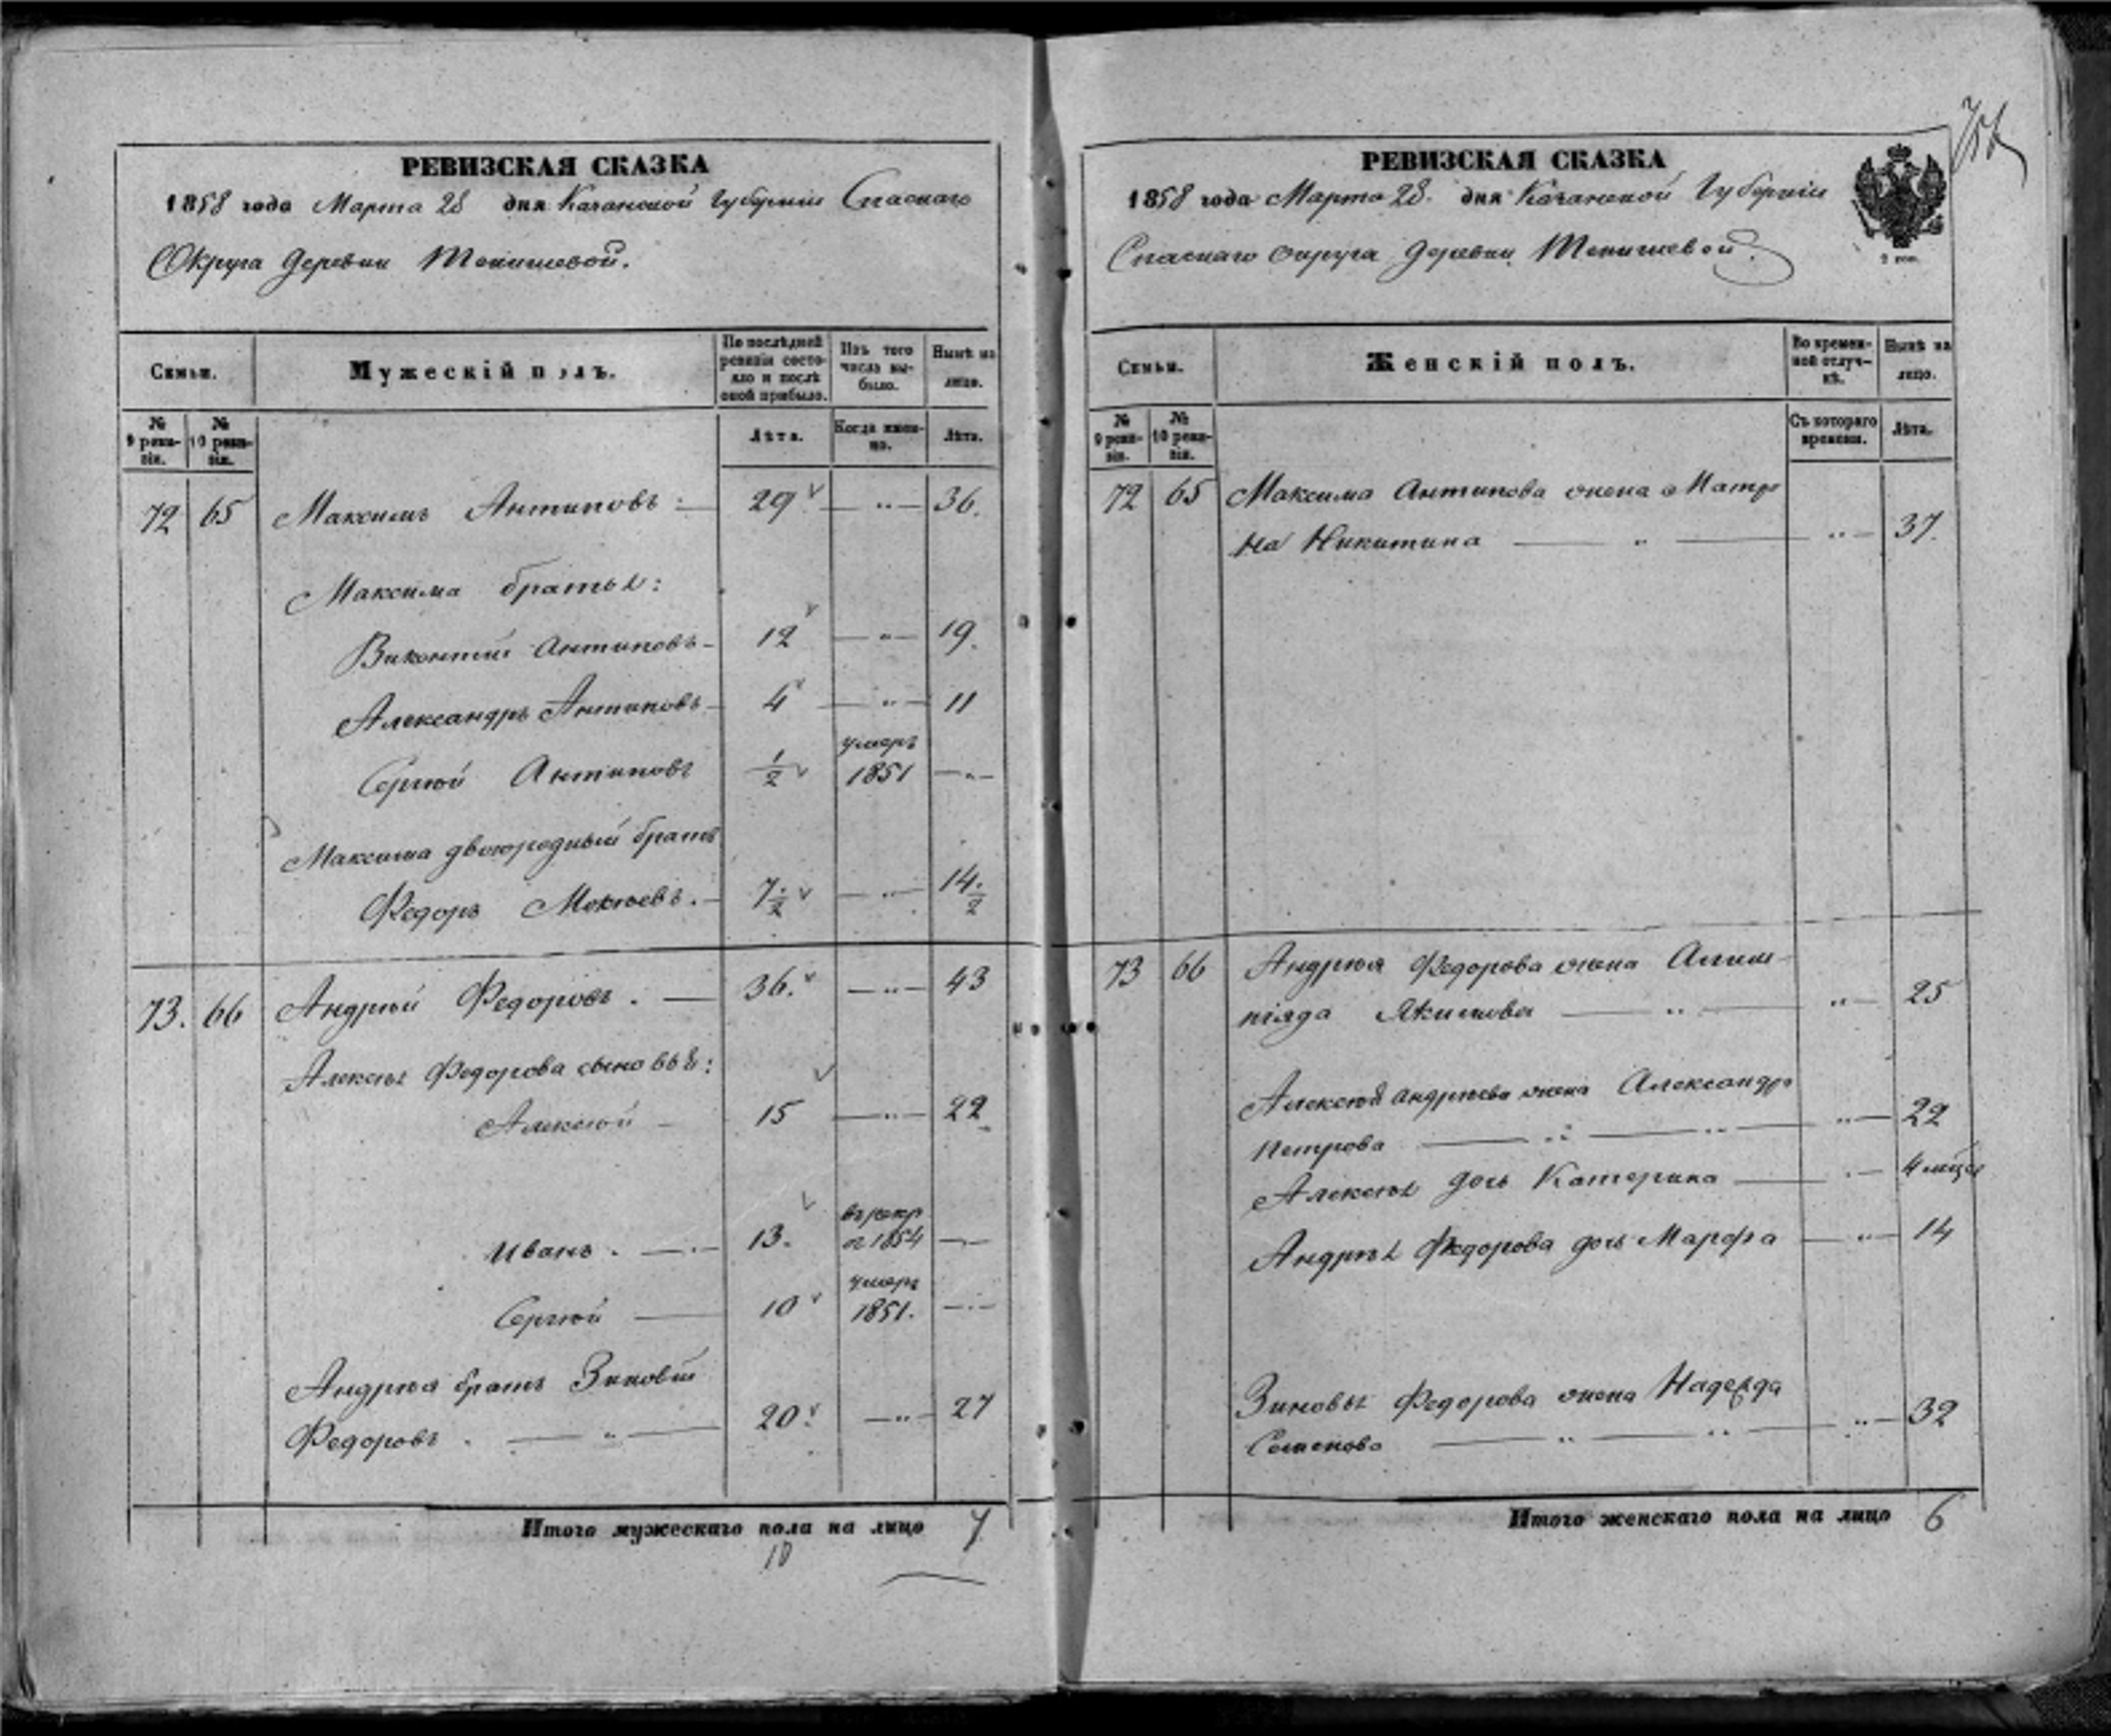 РЕВИЗСКАЯ СКАЗКА
1858 года Марта 28 дня Казанской Губернiи Спаскаго
Округа деревни Тенишевой.
Семьи.
Мужескiй полъ.
По послѣдней ревизiи состояло и послѣ оной прибыло.
Изъ того числа выбыло.
Нынѣ на лицо.
№ 9 ревизiи.
№ 10 ревизiи.
Лѣта.
Когда именно.
Лѣта.
72 65 Максимъ Антиповъ: 29 36.
Максима братья:
Викентiй Антиповъ 12 19.
Александръ Антиповъ 4 11
Сергѣй Антиповъ 1/2 умеръ 1851
Максима двоюродный братъ
Федоръ 7 1/2 14 1/2
73. 66 Андрѣй Федоровъ. 36. 43
Федорова сыновья:
Алексѣй 15 22
Иванъ. 13. 1854
Сергѣй 10 умеръ 1851.
Андрѣя братъ Зиновiй
Федоровъ. 20 27
Итого мужескаго пола на лицо 7
10
РЕВИЗСКАЯ СКАЗКА
1858 года Марта 28. дня Казанской Губернiи
Спаскаго округа деревни Тенишевой.
2 коп.
Семьи.
Женскiй полъ.
Во временной отлучкѣ.
Нынѣ на лицо.
№ 9 ревизiи.
№ 10 ревизiи.
Съ котораго времени.
Лѣта.
72 65 Максима Антипова жена Матре
на Никитина 37.
73 66 Андрѣя Федорова жена Алим-
пiяда Якимова 25
Алексѣя Андрѣева жена Александра
Петрова 22
Алексѣя дочь Катерина 4 мѣся
Андрѣя Федорова дочь Марфа 14
Зиновья Федорова жена Надежда
Семенова 32
Итого женскаго пола на лицо 6